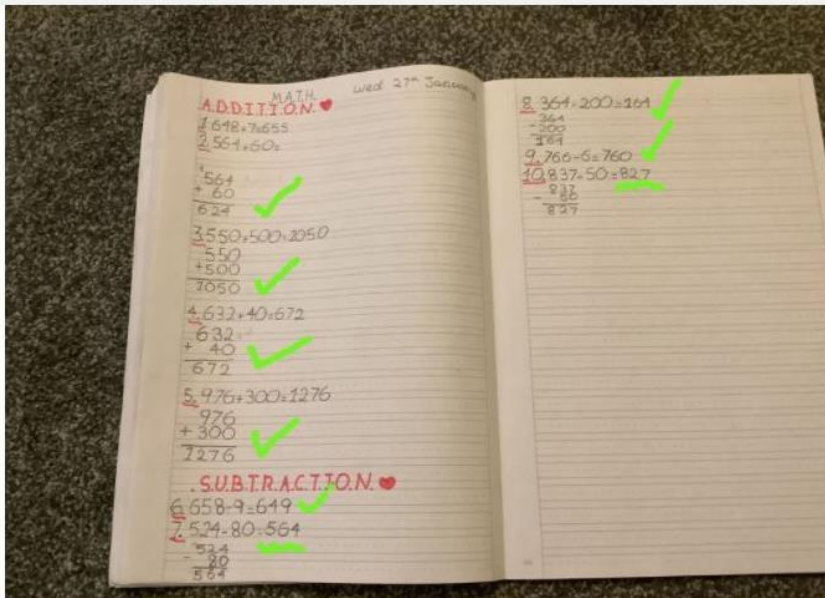 MATH
wed 27th January
A.D.D.I.T.I.O.N.
1. 648+7=655
2. 564+60=
1
564
+ 60
624
3. 550+500=1050
550
+500
1050
4. 632+40=672
632
+ 40
672
5. 976+300=1276
976
+ 300
1276
.S.U.B.T.R.A.C.T.I.O.N.
6. 658-9=649
7. 524-80=564
524
- 80
564
8. 364-200=164
364
-200
164
9. 766-6=760
10. 837-50=827
837
- 50
827